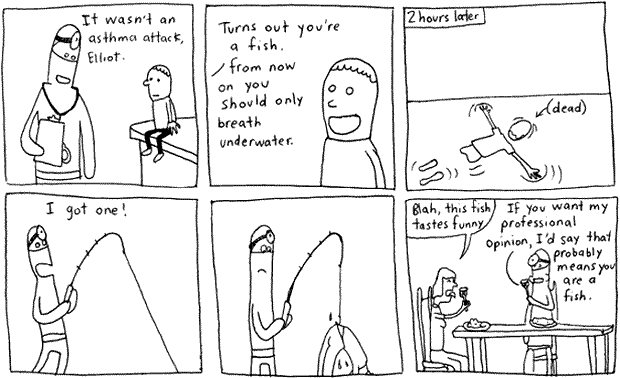 It wasn't an
asthma attack,
Elliot.
Turns out you're
a fish.
from now
on you
should only
breath
underwater.
2 hours later
(dead)
I got one!
Blah, this fish
tastes funny
If you want my
professional
opinion, I'd say that
probably
means you
are a
fish.